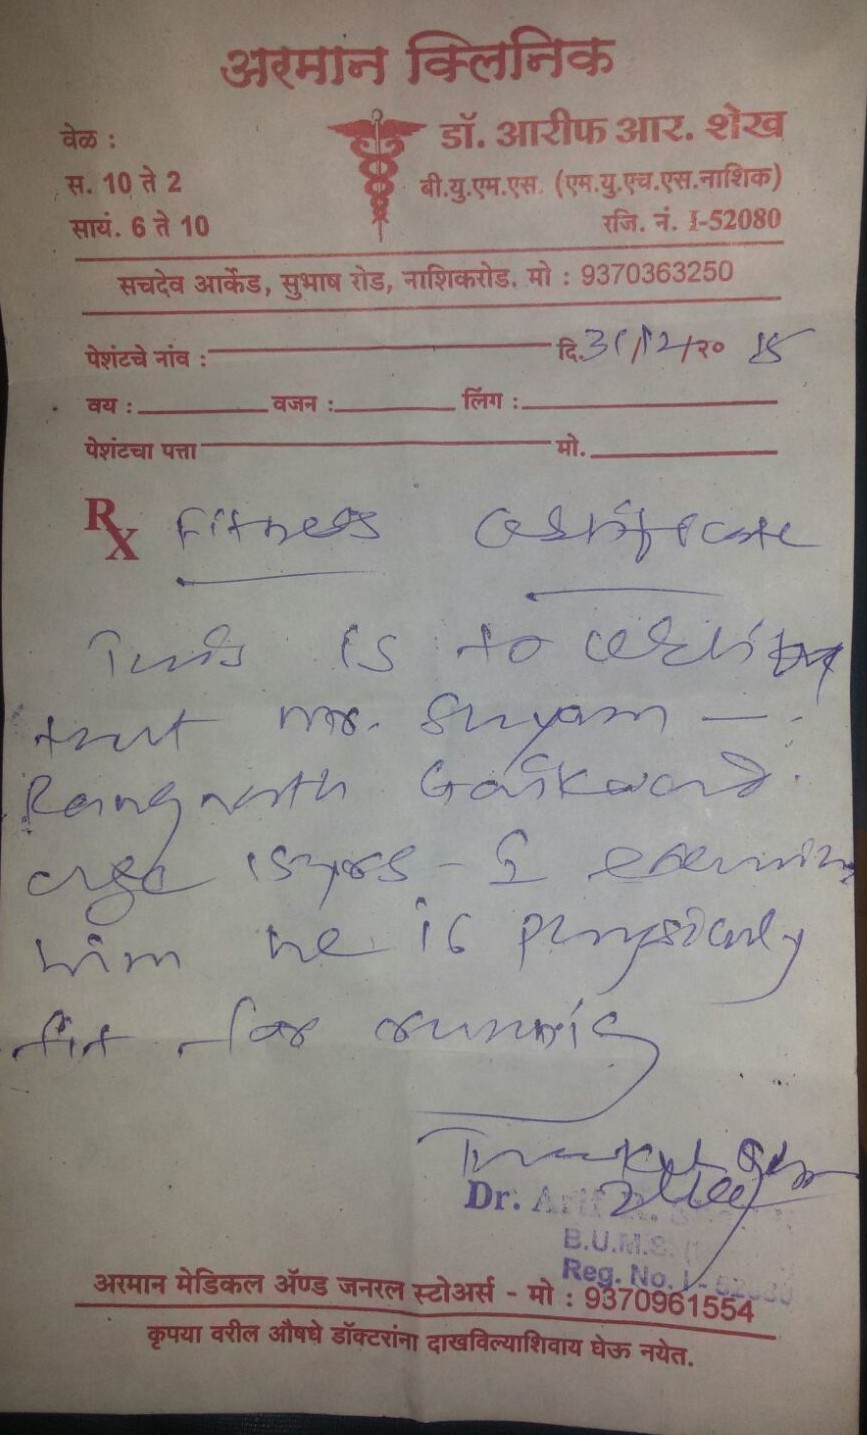 अरमान क्लिनिक
वेळ :
स. 10 ते 2
सायं. 6 ते 10
डॉ. आरीफ आर. शेख
बी.यु.एम.एस. (एम.यु.एच.एस.नाशिक)
रजि. नं. I-52080
सचदेव आर्केड, सुभाष रोड, नाशिकरोड. मो : 9370363250
पेशंटचे नांव : दि. 31/12/२० 15
वय : वजन : लिंग :
पेशंटचा पत्ता मो.
Rx Fitness Certificate
This is to certify
that Mr. Shyam -
Rangnath Gaikwad.
age 15 yrs - I
him he is physically
fit for running
Dr. Arif R.
B.U.M.S.
Reg. No. I - 52080
अरमान मेडिकल अ‍ॅण्ड जनरल स्टोअर्स - मो : 9370961554
कृपया वरील औषधे डॉक्टरांना दाखविल्याशिवाय घेऊ नयेत.